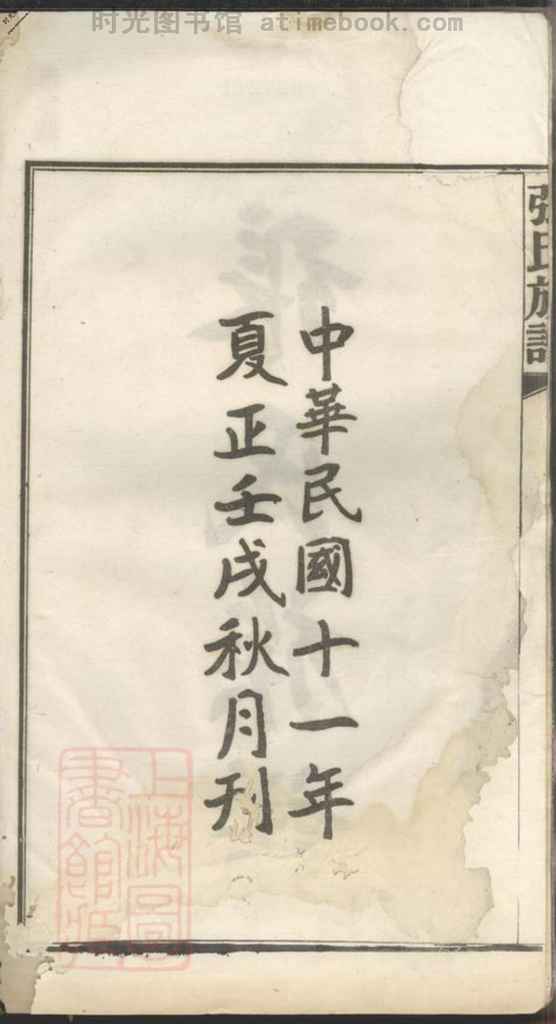 时光图书馆 atimebook.com
張氏族譜
中華民國十一年
夏正壬戌秋月刊
上海圖
書館藏